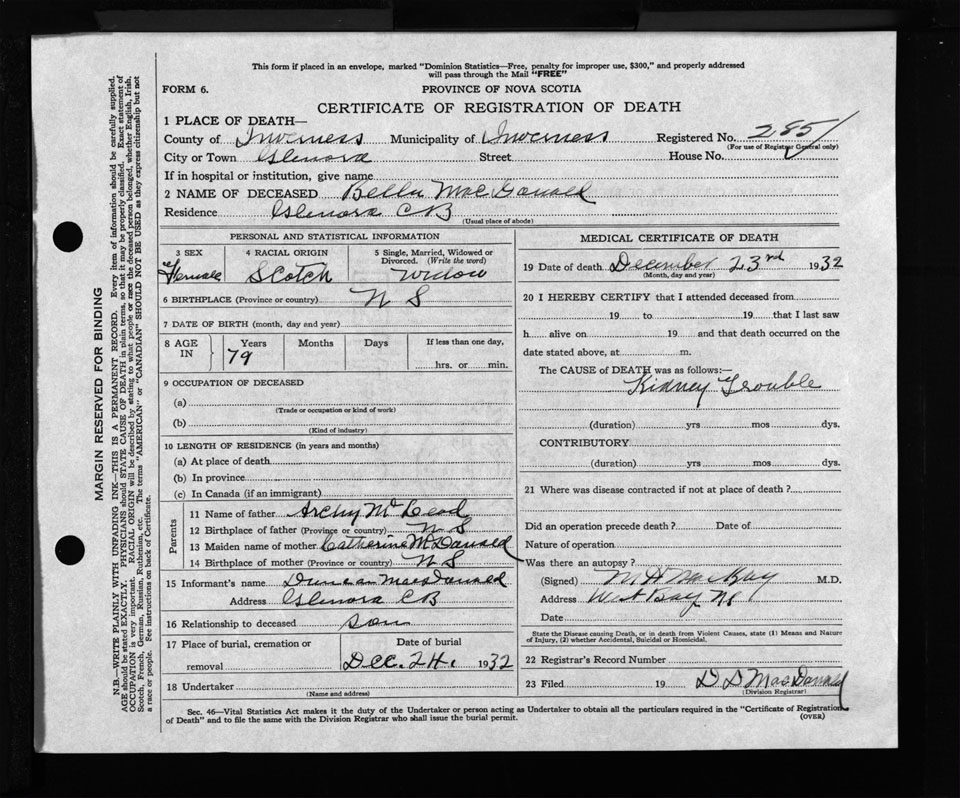 This form if placed in an envelope, marked "Dominion Statistics—Free, penalty for improper use, $300," and properly addressed
will pass through the Mail "FREE"
FORM 6. PROVINCE OF NOVA SCOTIA
CERTIFICATE OF REGISTRATION OF DEATH
1 PLACE OF DEATH—
County of Inverness Municipality of Inverness Registered No. 285
(For use of Registrar General only)
City or Town Glenora Street House No.
If in hospital or institution, give name
2 NAME OF DECEASED Bella MacDonald
Residence Glenora CB
(Usual place of abode)
PERSONAL AND STATISTICAL INFORMATION
3 SEX 4 RACIAL ORIGIN 5 Single, Married, Widowed or
Divorced. (Write the word)
Female Scotch Widow
6 BIRTHPLACE (Province or country) N S
7 DATE OF BIRTH (month, day and year)
8 AGE IN Years Months Days If less than one day,
79 hrs. or min.
9 OCCUPATION OF DECEASED
(a)
(Trade or occupation or kind of work)
(b)
(Kind of industry)
10 LENGTH OF RESIDENCE (in years and months)
(a) At place of death
(b) In province
(c) In Canada (if an immigrant)
Parents
11 Name of father Archy McLeod
12 Birthplace of father (Province or country) N S
13 Maiden name of mother Catherine McDanald
14 Birthplace of mother (Province or country) N S
15 Informant's name Duncan Macdonald
Address Glenora CB
16 Relationship to deceased son
17 Place of burial, cremation or Date of burial
removal Dec. 24 1932
18 Undertaker
(Name and address)
MEDICAL CERTIFICATE OF DEATH
19 Date of death December 23rd 1932
(Month, day and year)
20 I HEREBY CERTIFY that I attended deceased from
19 to 19 that I last saw
h alive on 19 and that death occurred on the
date stated above, at m.
The CAUSE of DEATH was as follows:—
Kidney Trouble
(duration) yrs mos dys.
CONTRIBUTORY
(duration) yrs mos dys.
21 Where was disease contracted if not at place of death ?
Did an operation precede death ? Date of
Nature of operation
Was there an autopsy ?
(Signed) M H MacKay M.D.
Address West Bay NS
Date
State the Disease causing Death, or in death from Violent Causes, state (1) Means and Nature
of Injury, (2) whether Accidental, Suicidal or Homicidal.
22 Registrar's Record Number
23 Filed 19 D D MacDonald
(Division Registrar)
Sec. 46—Vital Statistics Act makes it the duty of the Undertaker or person acting as Undertaker to obtain all the particulars required in the "Certificate of Registration
of Death" and to file the same with the Division Registrar who shall issue the burial permit. (OVER)
MARGIN RESERVED FOR BINDING
N.B.—WRITE PLAINLY WITH UNFADING INK—THIS IS A PERMANENT RECORD. Every item of information should be carefully supplied.
AGE should be stated EXACTLY. PHYSICIANS should STATE CAUSE OF DEATH in plain terms, so that it may be properly classified. Exact statement of
OCCUPATION is very important. RACIAL ORIGIN will be described by stating to what people or race the deceased person belonged, whether English, Irish,
Scotch, French, German, Russian, Ruthenian, etc. The terms "AMERICAN" or "CANADIAN" SHOULD NOT BE USED as they express citizenship but not
a race or people. See instructions on back of Certificate.